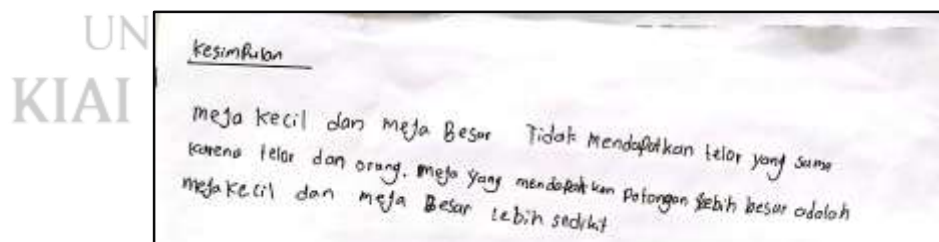 UN
KIAI
Kesimpulan
meja kecil dan meja Besar Tidak mendapatkan telor yang sama
karena telor dan orang. meja yang mendapatkan potongan lebih besar adalah
meja kecil dan meja Besar lebih sedikit